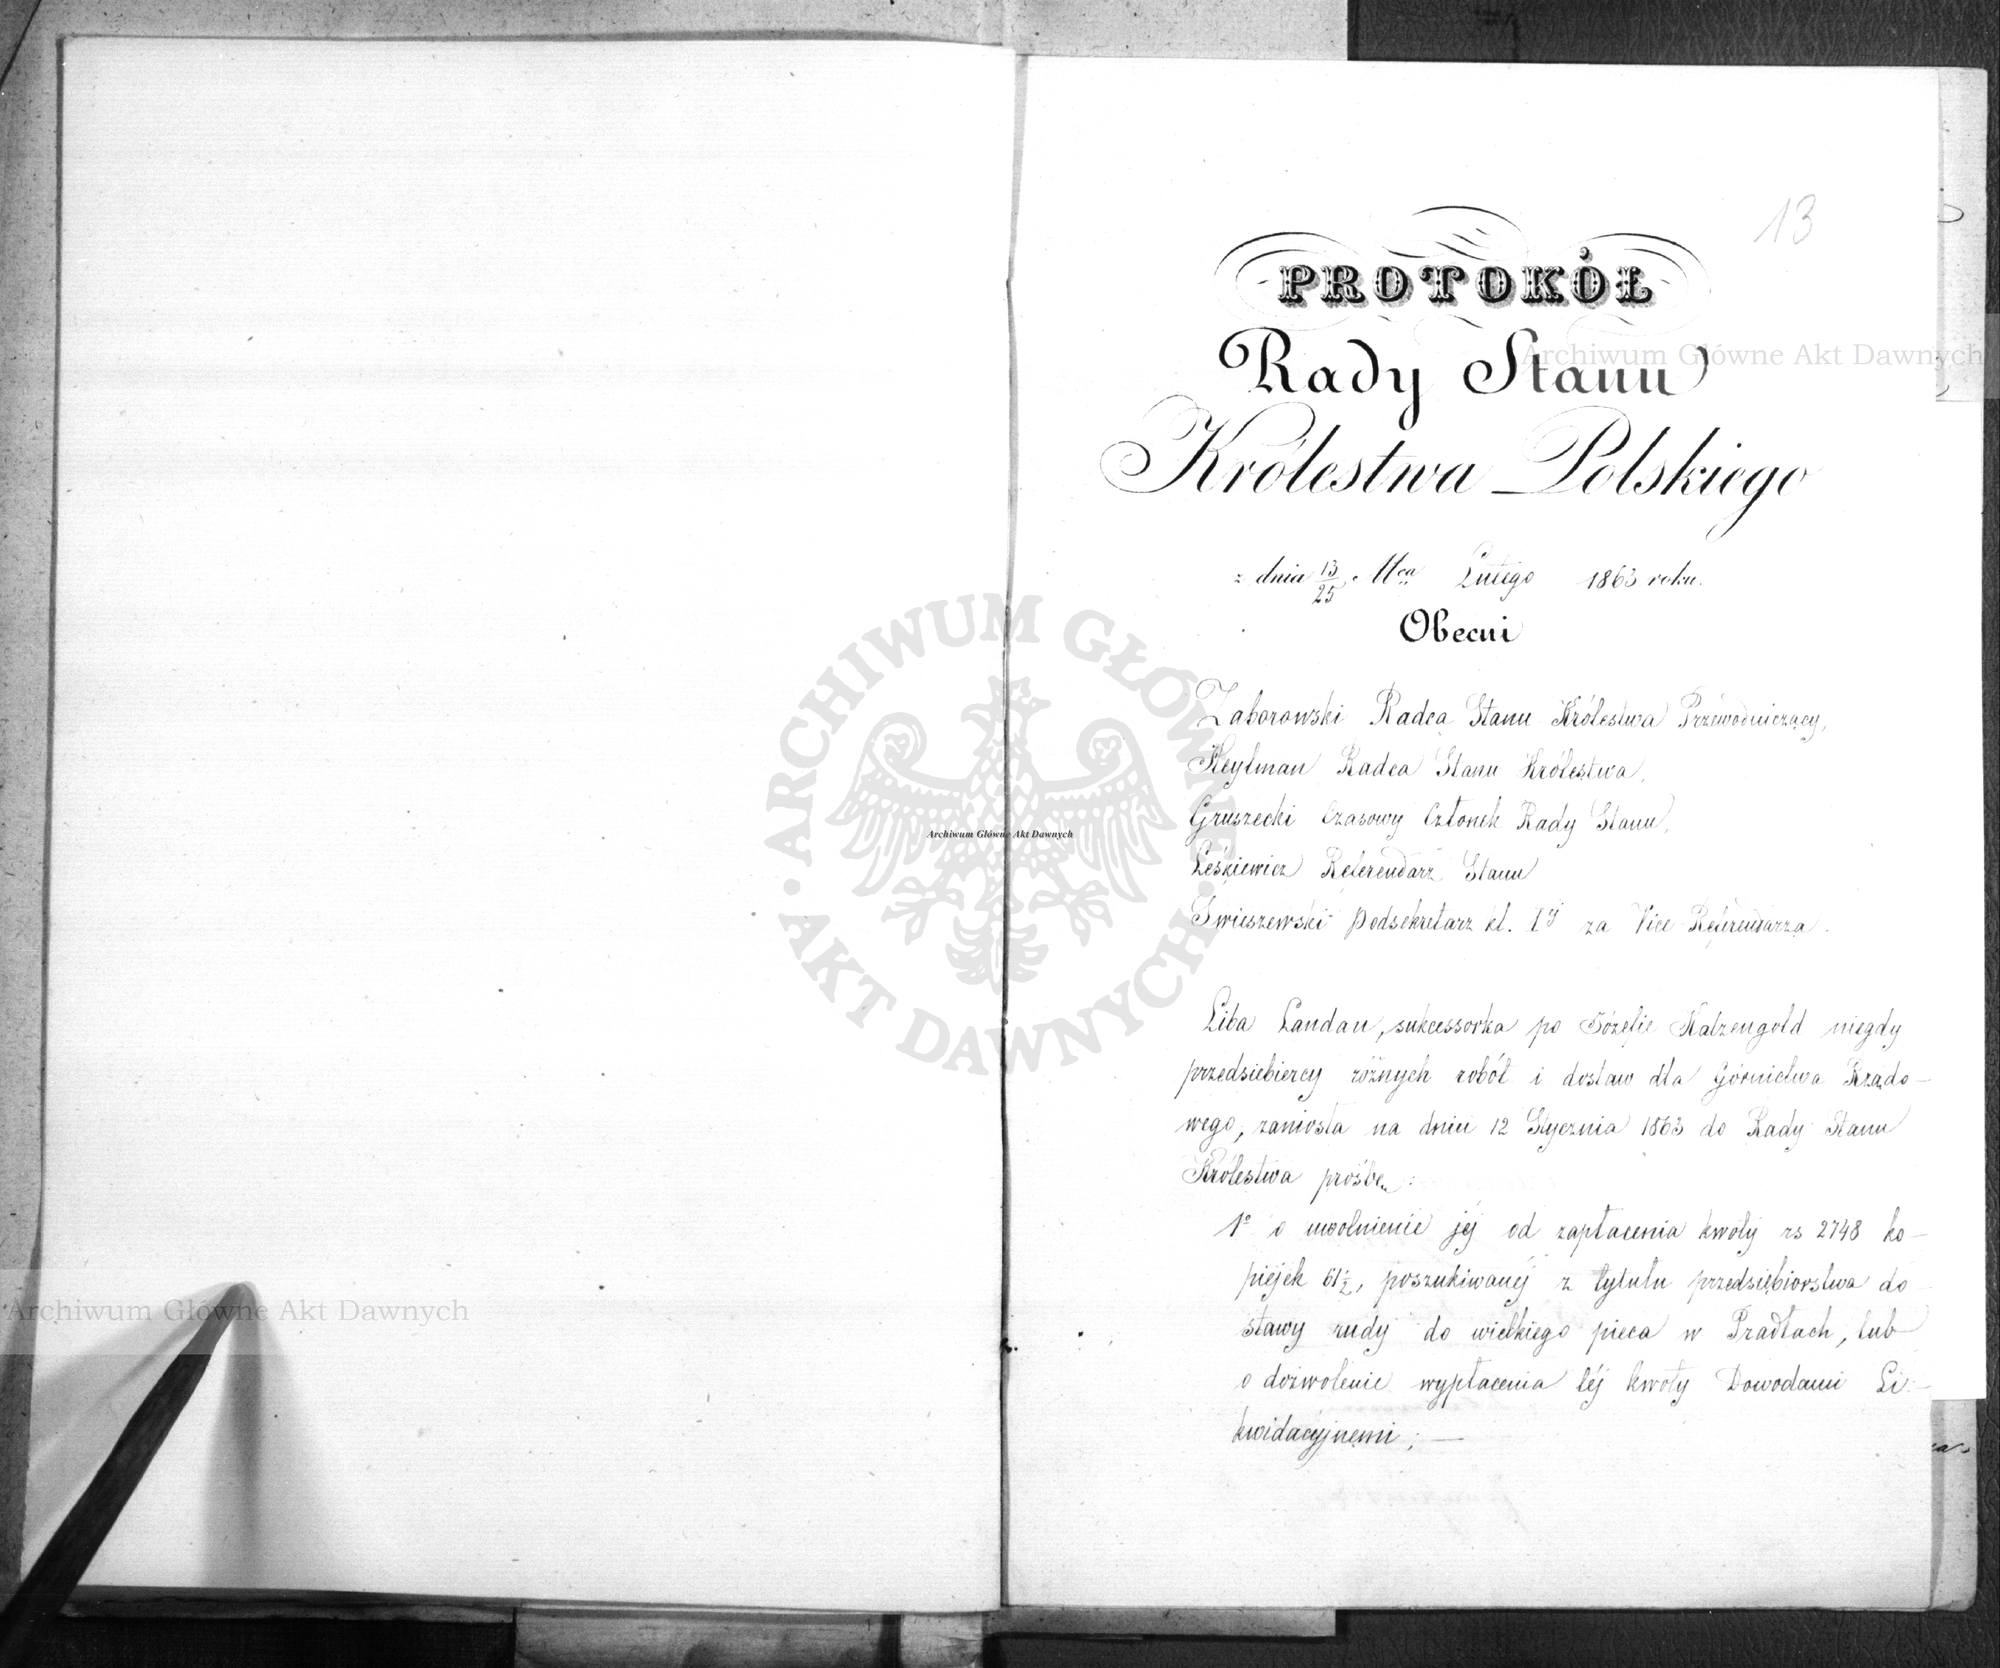 13
PROTOKÓŁ
Rady Stanu
Królestwa Polskiego
z dnia 13/25 Mca Lutego 1863 roku.
Obecni
Zaborowski Radca Stanu Królestwa Przewodniczący,
Heylman Radca Stanu Królestwa,
Gruszecki Czasowy Członek Rady Stanu,
Leśkiewicz Referendarz Stanu
Świeszewski Podsekretarz kl. Iéj za Vice Referendarza.
Liba Landau, sukcessorka po Józefie Katzengold niegdy
przedsiebiercy różnych robót i dostaw dla Górnictwa Rządo-
wego, zaniosła na dniu 12 Stycznia 1863 do Rady Stanu
Królestwa prośbę:
1° o uwolnienie jéj od zapłacenia kwoty rs 2748 ko-
piejek 61½, poszukiwanéj z tytułu przedsiębiorstwa do-
stawy rudy do wielkiego pieca w Pradłach, lub
o dozwolenie wypłacenia téj kwoty Dowodami Li-
kwidacyjnemi; —
Archiwum Główne Akt Dawnych
Archiwum Główne Akt Dawnych
Archiwum Główne Akt Dawnych
ARCHIWUM GŁÓWNE AKT DAWNYCH